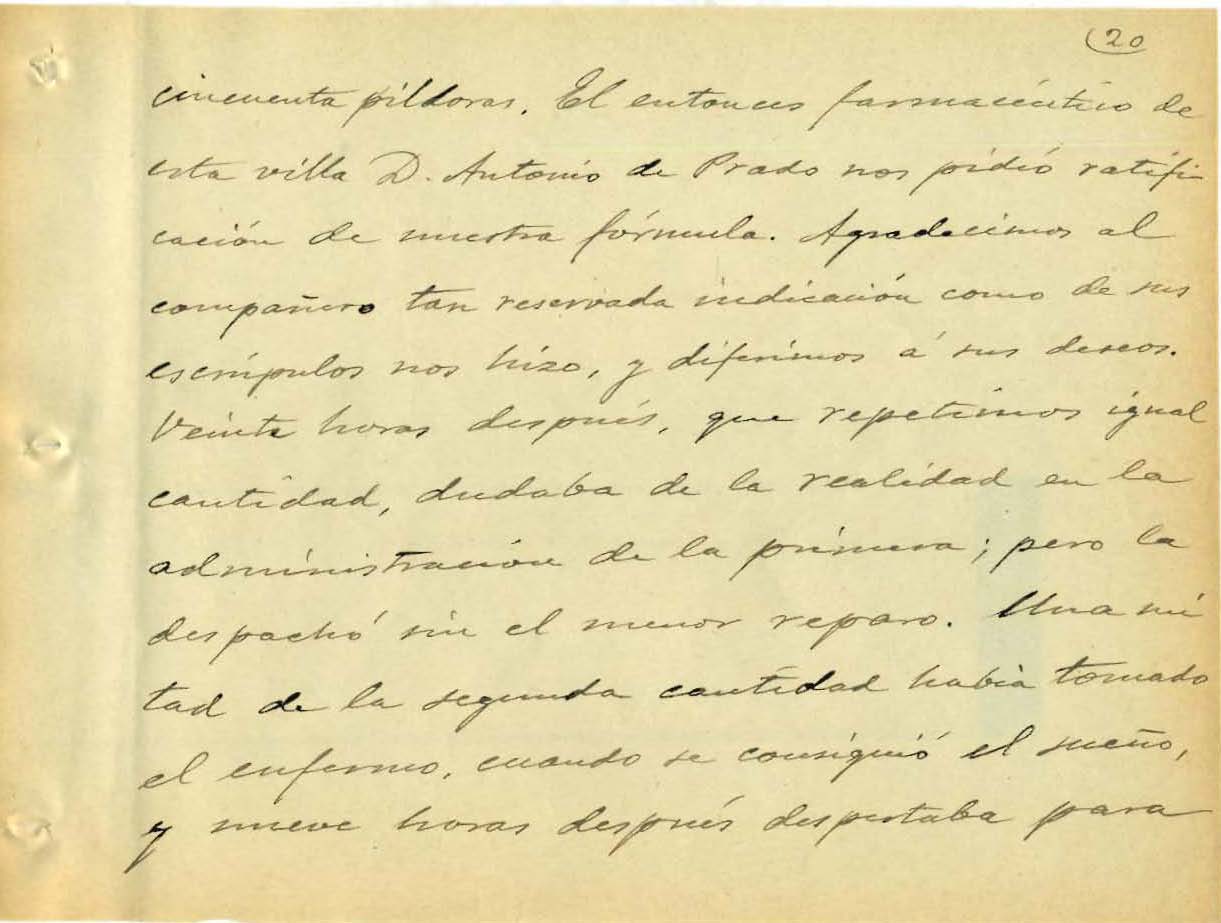 20
cincuenta píldoras. El entonces farmacéutico de
esta villa D. Antonio de Prado nos pidió ratifi-
cación de nuestra fórmula. Agradecimos al
compañero tan reservada indicación como de sus
escrúpulos nos hizo, y diferimos á sus deseos.
Veinte horas después, que repetimos igual
cantidad, dudaba de la realidad en la
administración de la primera; pero la
despachó sin el menor reparo. Una mi
tad de la segunda cantidad había tomado
el enfermo, cuando se consiguió el sueño,
y nueve horas después despertaba para